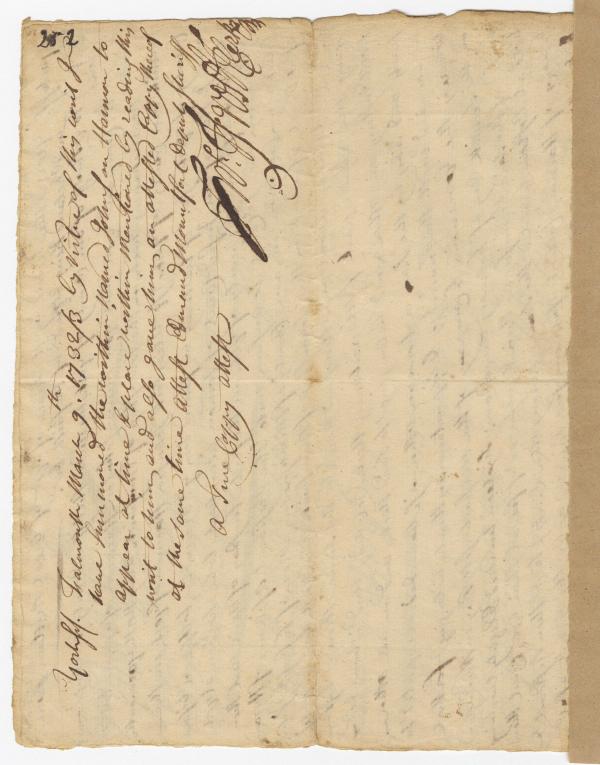 25 2
Yorkss. Falmouth Marct 9th. 1732/3 by Virtue of this writ I
have summoned the within Named Johnson Harmon to
appear at time & place within Mentioned by reading this
writ to him and also gave him an attested Copy thereof
at the same time attest Edmund Mountfort Deputy Sheriff
a True Copy attest